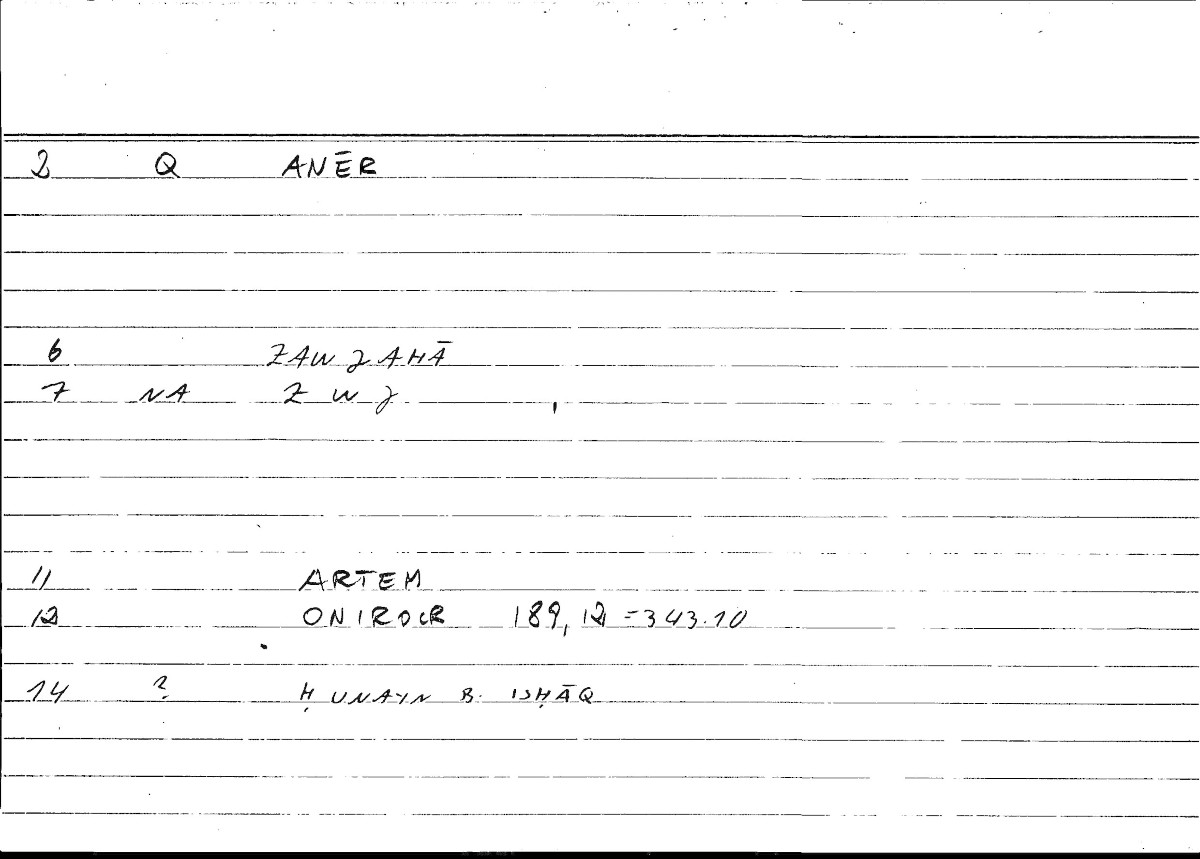 2 Q ANĒR
6 ZAWJAHĀ
7 NA Z W J
11 ARTEM
12 ONIROCR 189, 12 = 343.10
14 ? ḤUNAYN B. ISḤĀQ